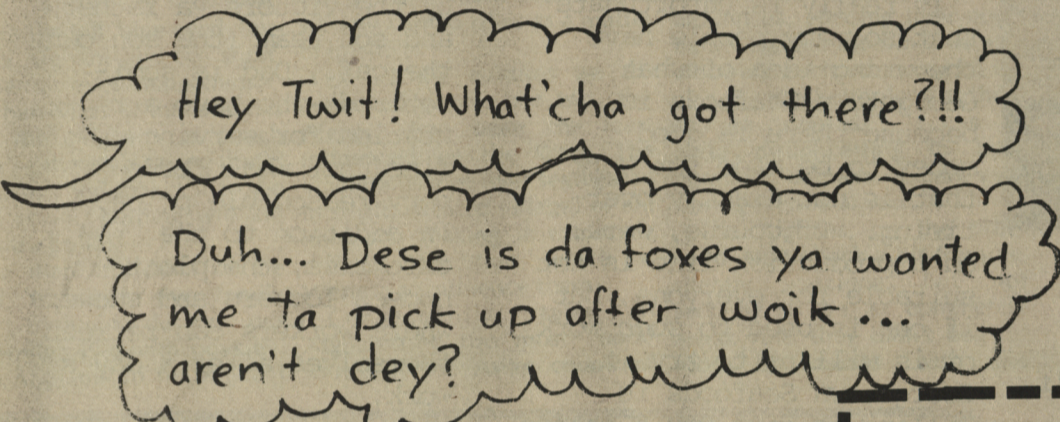 Hey Twit! What'cha got there?!!
Duh... Dese is da foxes ya wanted
me ta pick up after woik...
aren't dey?